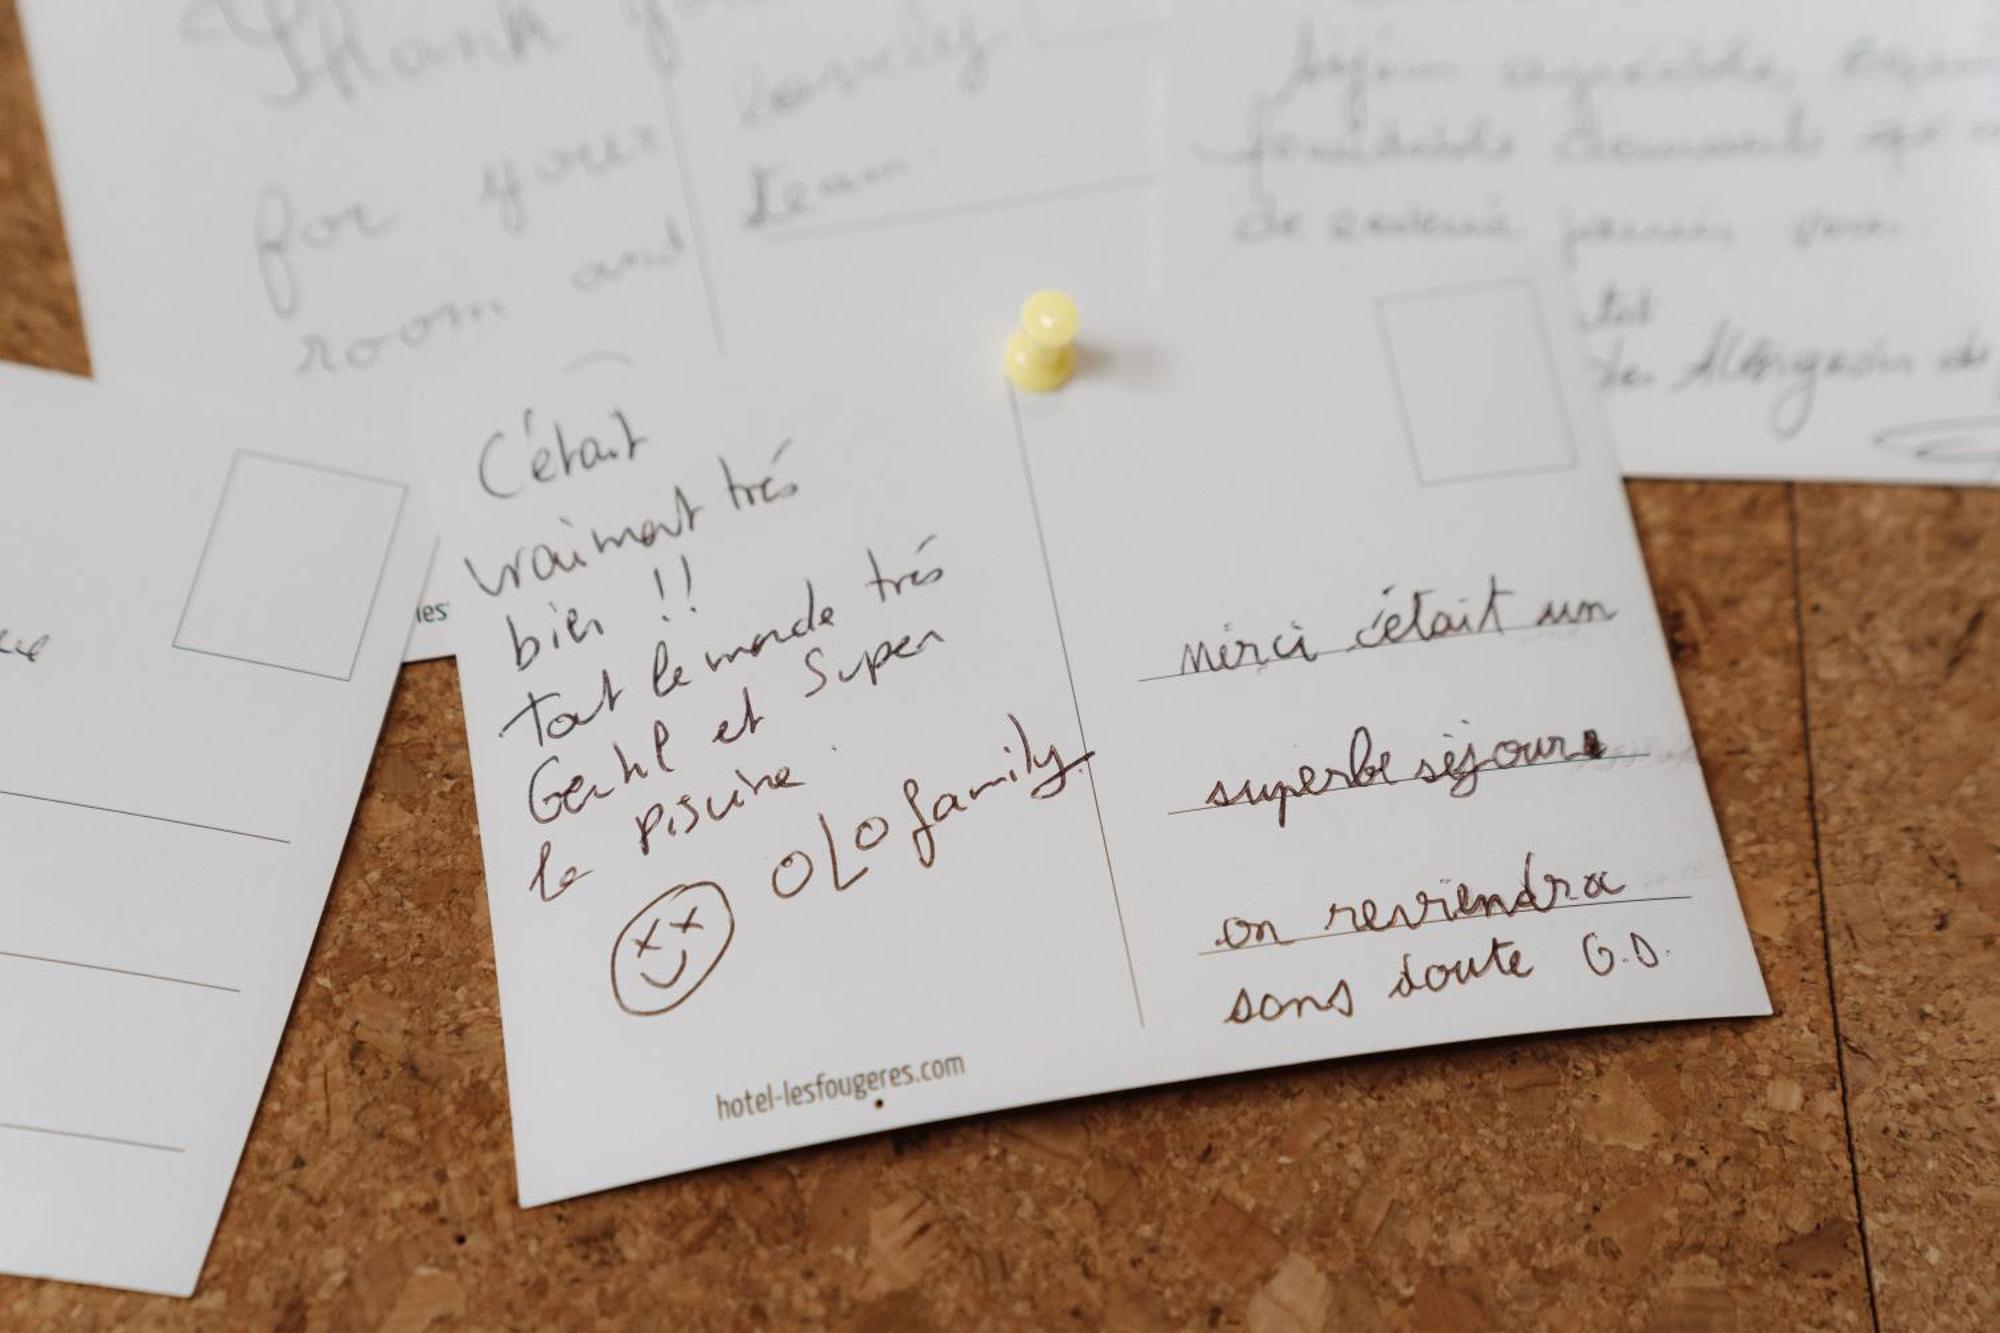 Thank
for your
room and
lovely
team.
séjour agréable,
formidable
de revenir parmi vous.
les
C'était
vraiment très
bien !!
Tout le monde très
Gentil et Super
la piscine.
OLO family.
merci c'était un
superbe séjour
on reviendra
sans doute G.D.
hotel-lesfougeres.com